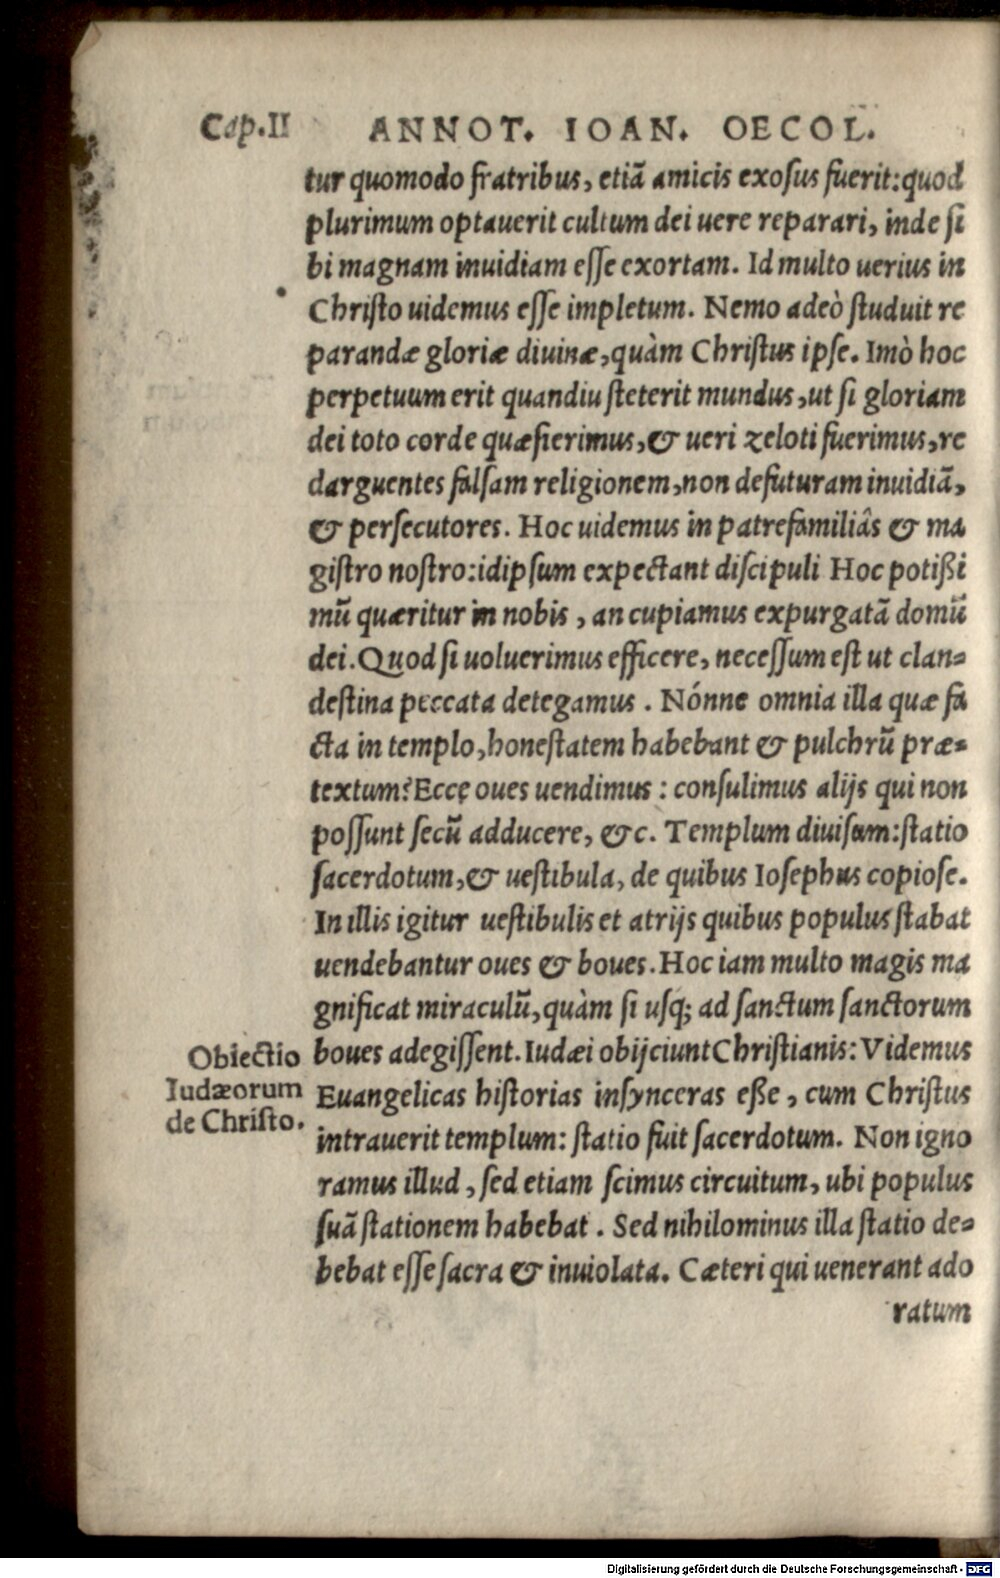 Cap.II ANNOT. IOAN. OECOL.
tur quomodo fratribus, etiā amicis exosus fuerit: quod
plurimum optauerit cultum dei uere reparari, inde si
bi magnam inuidiam esse exortam. Id multo uerius in
Christo uidemus esse impletum. Nemo adeò studuit re
parandæ gloriæ diuinæ, quàm Christus ipse. Imò hoc
perpetuum erit quandiu steterit mundus, ut si gloriam
dei toto corde quæsierimus, & ueri zeloti fuerimus, re
darguentes falsam religionem, non defuturam inuidiā,
& persecutores. Hoc uidemus in patrefamiliâs & ma
gistro nostro: idipsum expectant discipuli Hoc potißi
mū quæritur in nobis, an cupiamus expurgatā domū
dei. Quod si uoluerimus efficere, necessum est ut clan=
destina peccata detegamus. Nónne omnia illa quæ fa
cta in templo, honestatem habebant & pulchrū præ=
textum? Ecce oues uendimus: consulimus alijs qui non
possunt secū adducere, &c. Templum diuisum: statio
sacerdotum, & uestibula, de quibus Iosephus copiose.
In illis igitur uestibulis et atrijs quibus populus stabat
uendebantur oues & boues. Hoc iam multo magis ma
gnificat miraculū, quàm si usq; ad sanctum sanctorum
boues adegissent. Iudæi obijciunt Christianis: Videmus
Euangelicas historias insynceras eße, cum Christus
intrauerit templum: statio fuit sacerdotum. Non igno
ramus illud, sed etiam scimus circuitum, ubi populus
suā stationem habebat. Sed nihilominus illa statio de=
bebat esse sacra & inuiolata. Cæteri qui uenerant ado
ratum
Obiectio
Iudæorum
de Christo.
Digitalisierung gefördert durch die Deutsche Forschungsgemeinschaft - DFG